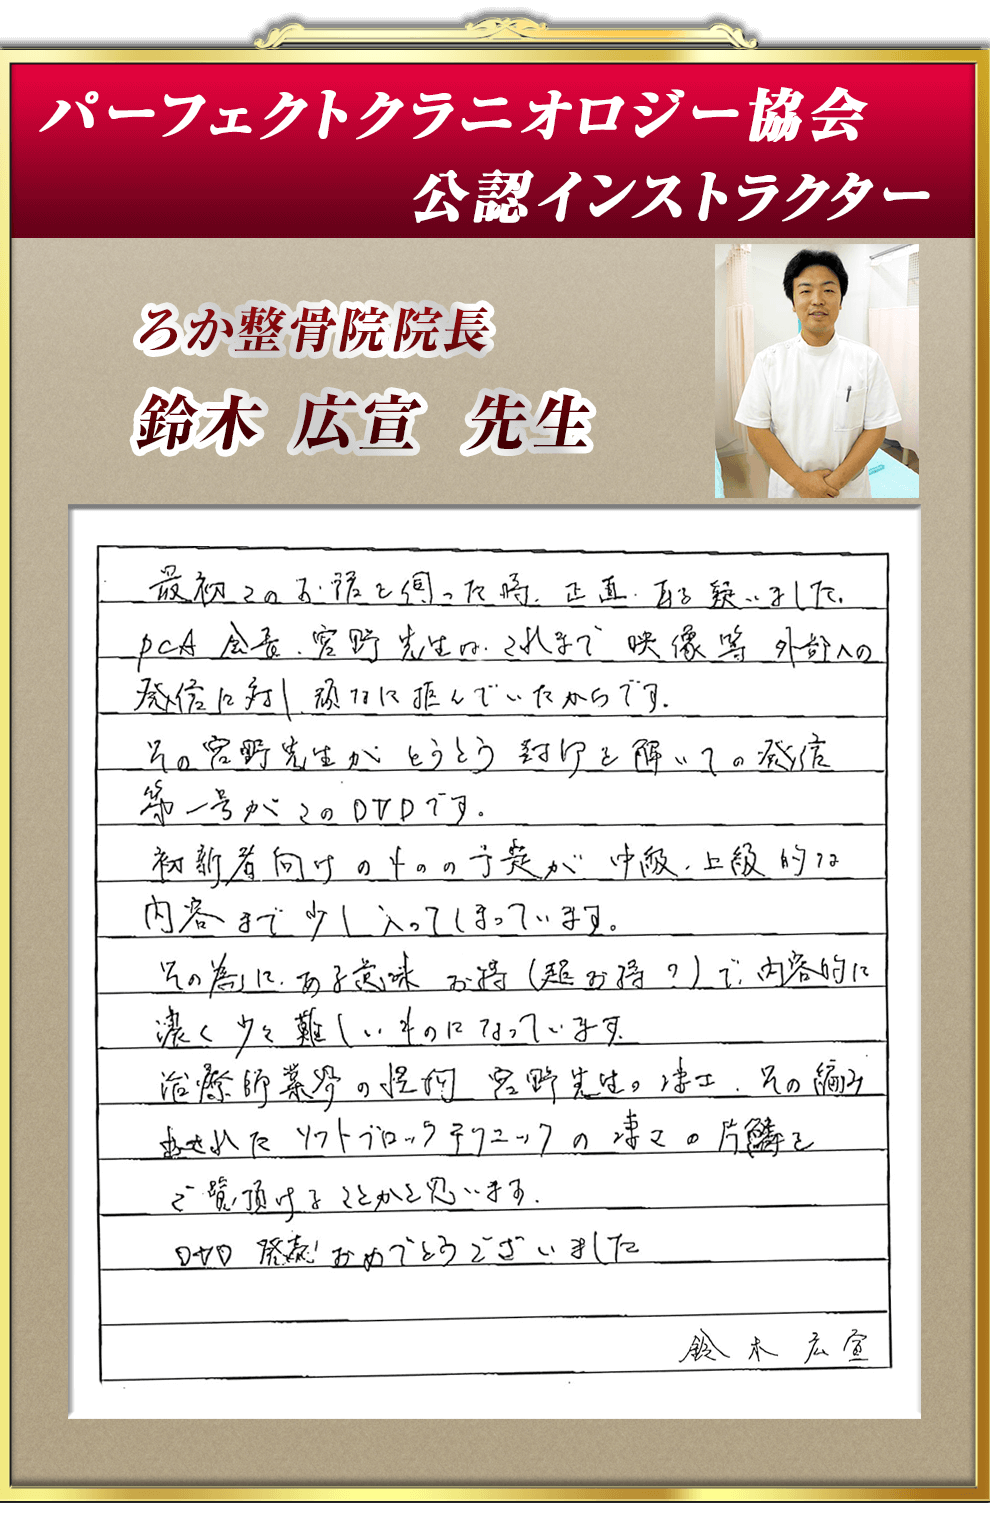 パーフェクトクラニオロジー協会
公認インストラクター
ろか整骨院院長
鈴木 広宣 先生
最初このお話を伺った時、正直、耳を疑いました。
PCA会長、宮野先生は、これまで映像等外部への
発信に対し頑なに拒んでいたからです。
その宮野先生がとうとう封印を解いての発信
第一号がこのDVDです。
初新者向けのものの予定が中級、上級的な
内容まで少し入ってしまっています。
その為に、ある意味お得(超お得?)で、内容的に
濃く少々難しいものになっています。
治療師業界の怪物 宮野先生の凄さ、その編み
出されたソフトブロックテクニックの凄さの片鱗を
ご覧頂けることかと思います。
DVD発売!おめでとうございました
鈴木広宣